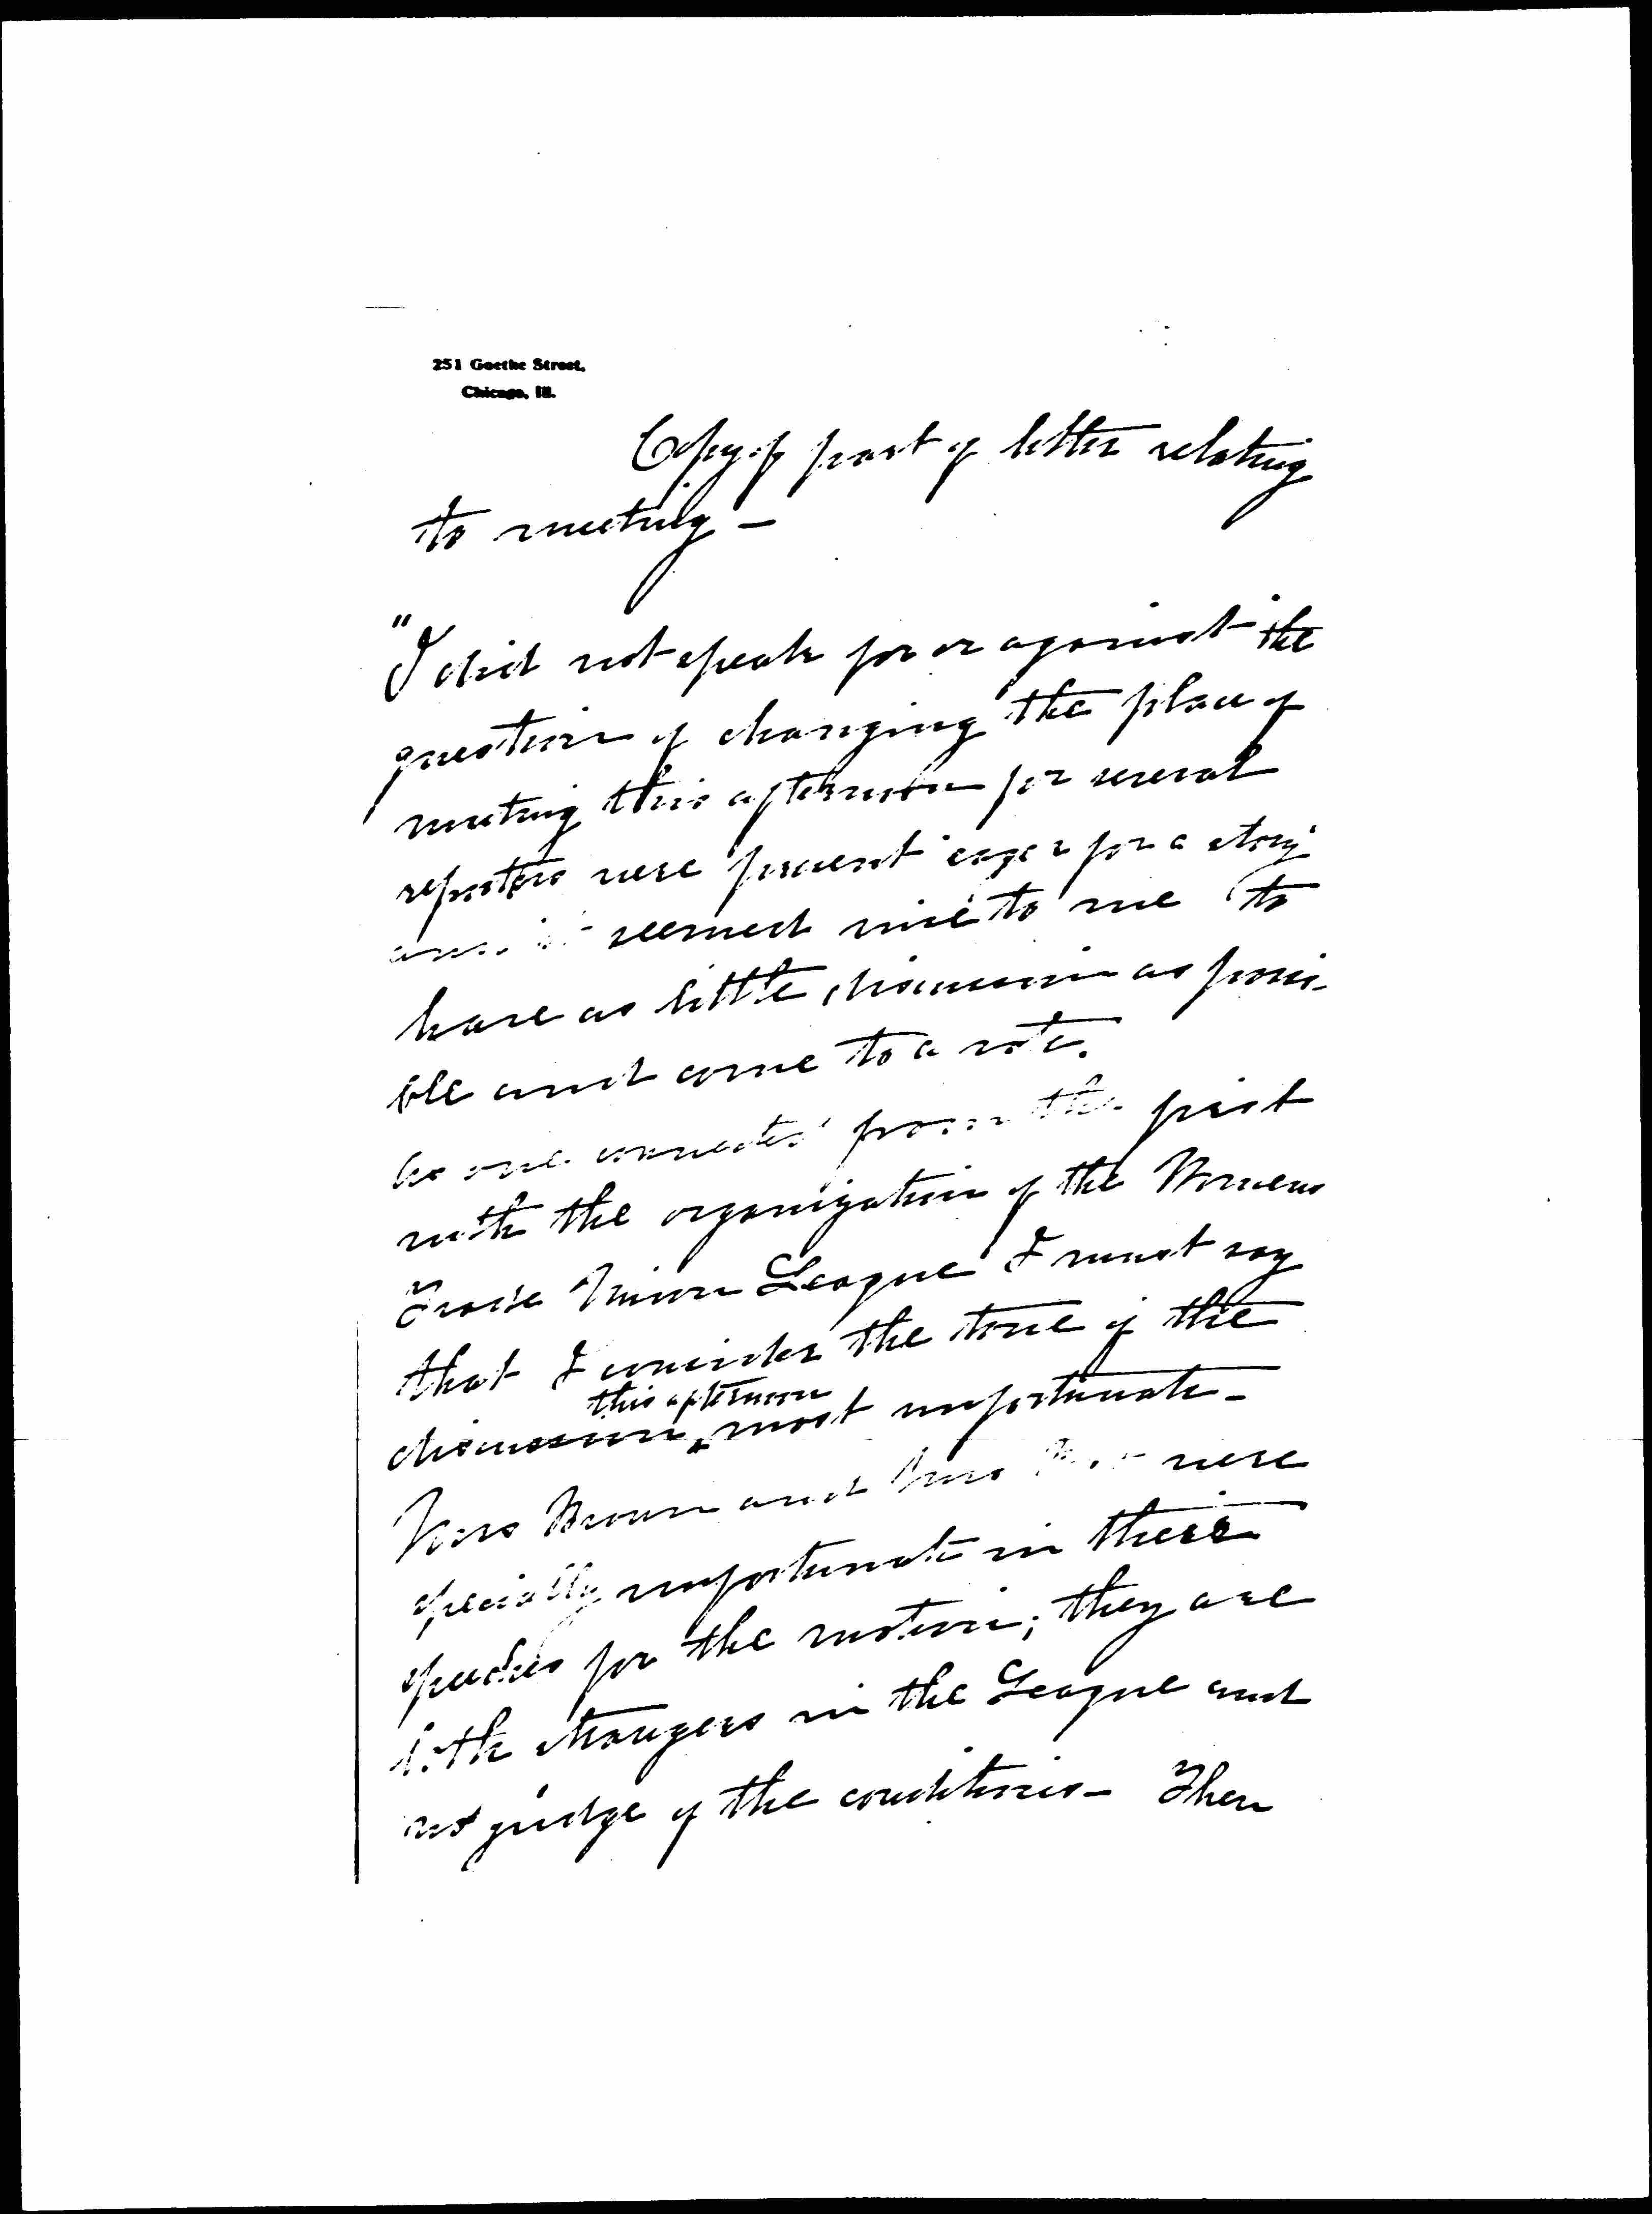 251 Goethe Street,
Chicago, Ill.
Copy of part of letter relating
to meeting –
"I did not speak for or against the
question of changing the place of
meeting this afternoon for several
reporters were present eager for a story
and it seemed wise to me to
have as little discussion as possi-
ble and come to a vote.
As one connected from the first
with the organization of the Womens
Trade Union League I must say
that I consider the tone of the
this afternoon
discussion most unfortunate –
Miss Brown and Miss were
specially unfortunate in their
speeches for the motion; they are
both strangers in the League and
not judge of the conditions – Then